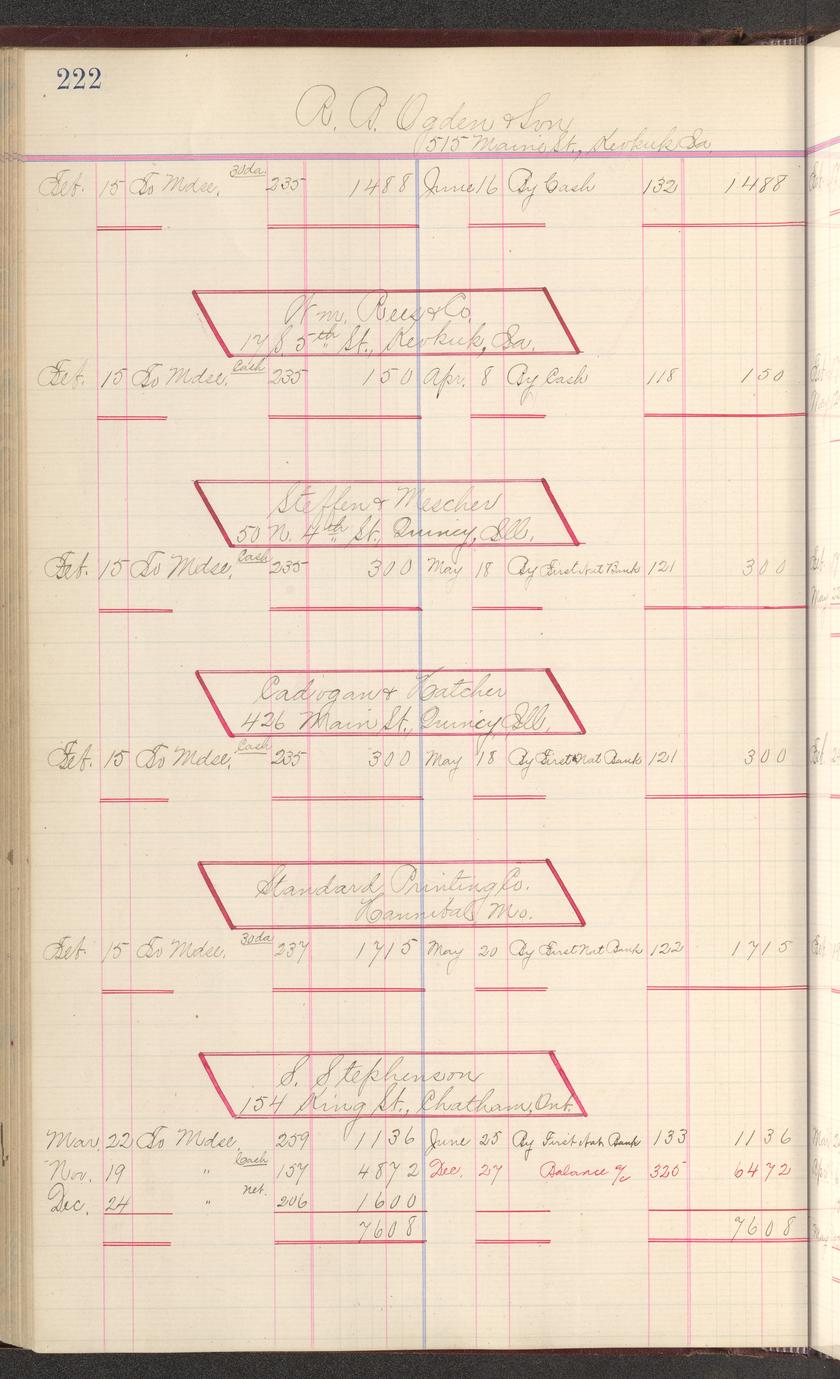 222
R. B. Ogden & Son
515 Main St., Keokuk Ia.
Feb. 15 To Mdse. 30da. 235 1488 June 16 By Cash 132 1488
Wm. Rees & Co.
17 S. 5th St., Keokuk, Ia.
Feb. 15 To Mdse. Cash 235 150 Apr. 8 By Cash 118 150
Steffen & Mescher
50 N. 4th St., Quincy, Ill.
Feb. 15 To Mdse. Cash 235 300 May 18 By First Nat Bank 121 300
Cadogan & Hatcher
426 Main St., Quincy, Ill.
Feb. 15 To Mdse. Cash 235 300 May 18 By First Nat Bank 121 300
Standard Printing Co.
Hannibal Mo.
Feb. 15 To Mdse. 30da 237 1715 May 20 By First Nat Bank 122 1715
S. Stephenson
154 King St., Chatham, Ont.
Mar. 22 To Mdse. 259 1136 June 25 By First Nat. Bank 133 1136
Nov. 19 " Cash 157 4872 Dec. 27 Balance a/c 325 6472
Dec. 24 " net. 206 1600
7608 7608